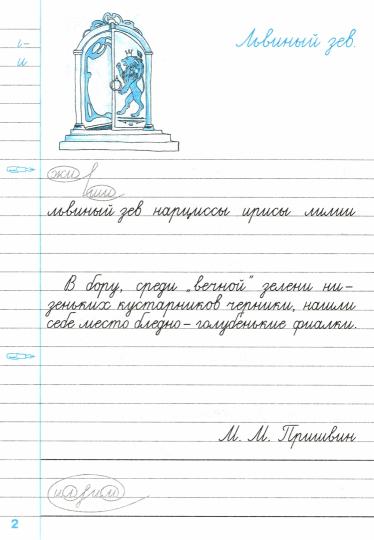 Львиный зев.
и-
и
жи
ши
львиный зев нарциссы ирисы лилии
В бору, среди „вечной" зелени ни-
зеньких кустарников черники, нашли
себе место бледно-голубенькие фиалки.
М. М. Пришвин
2